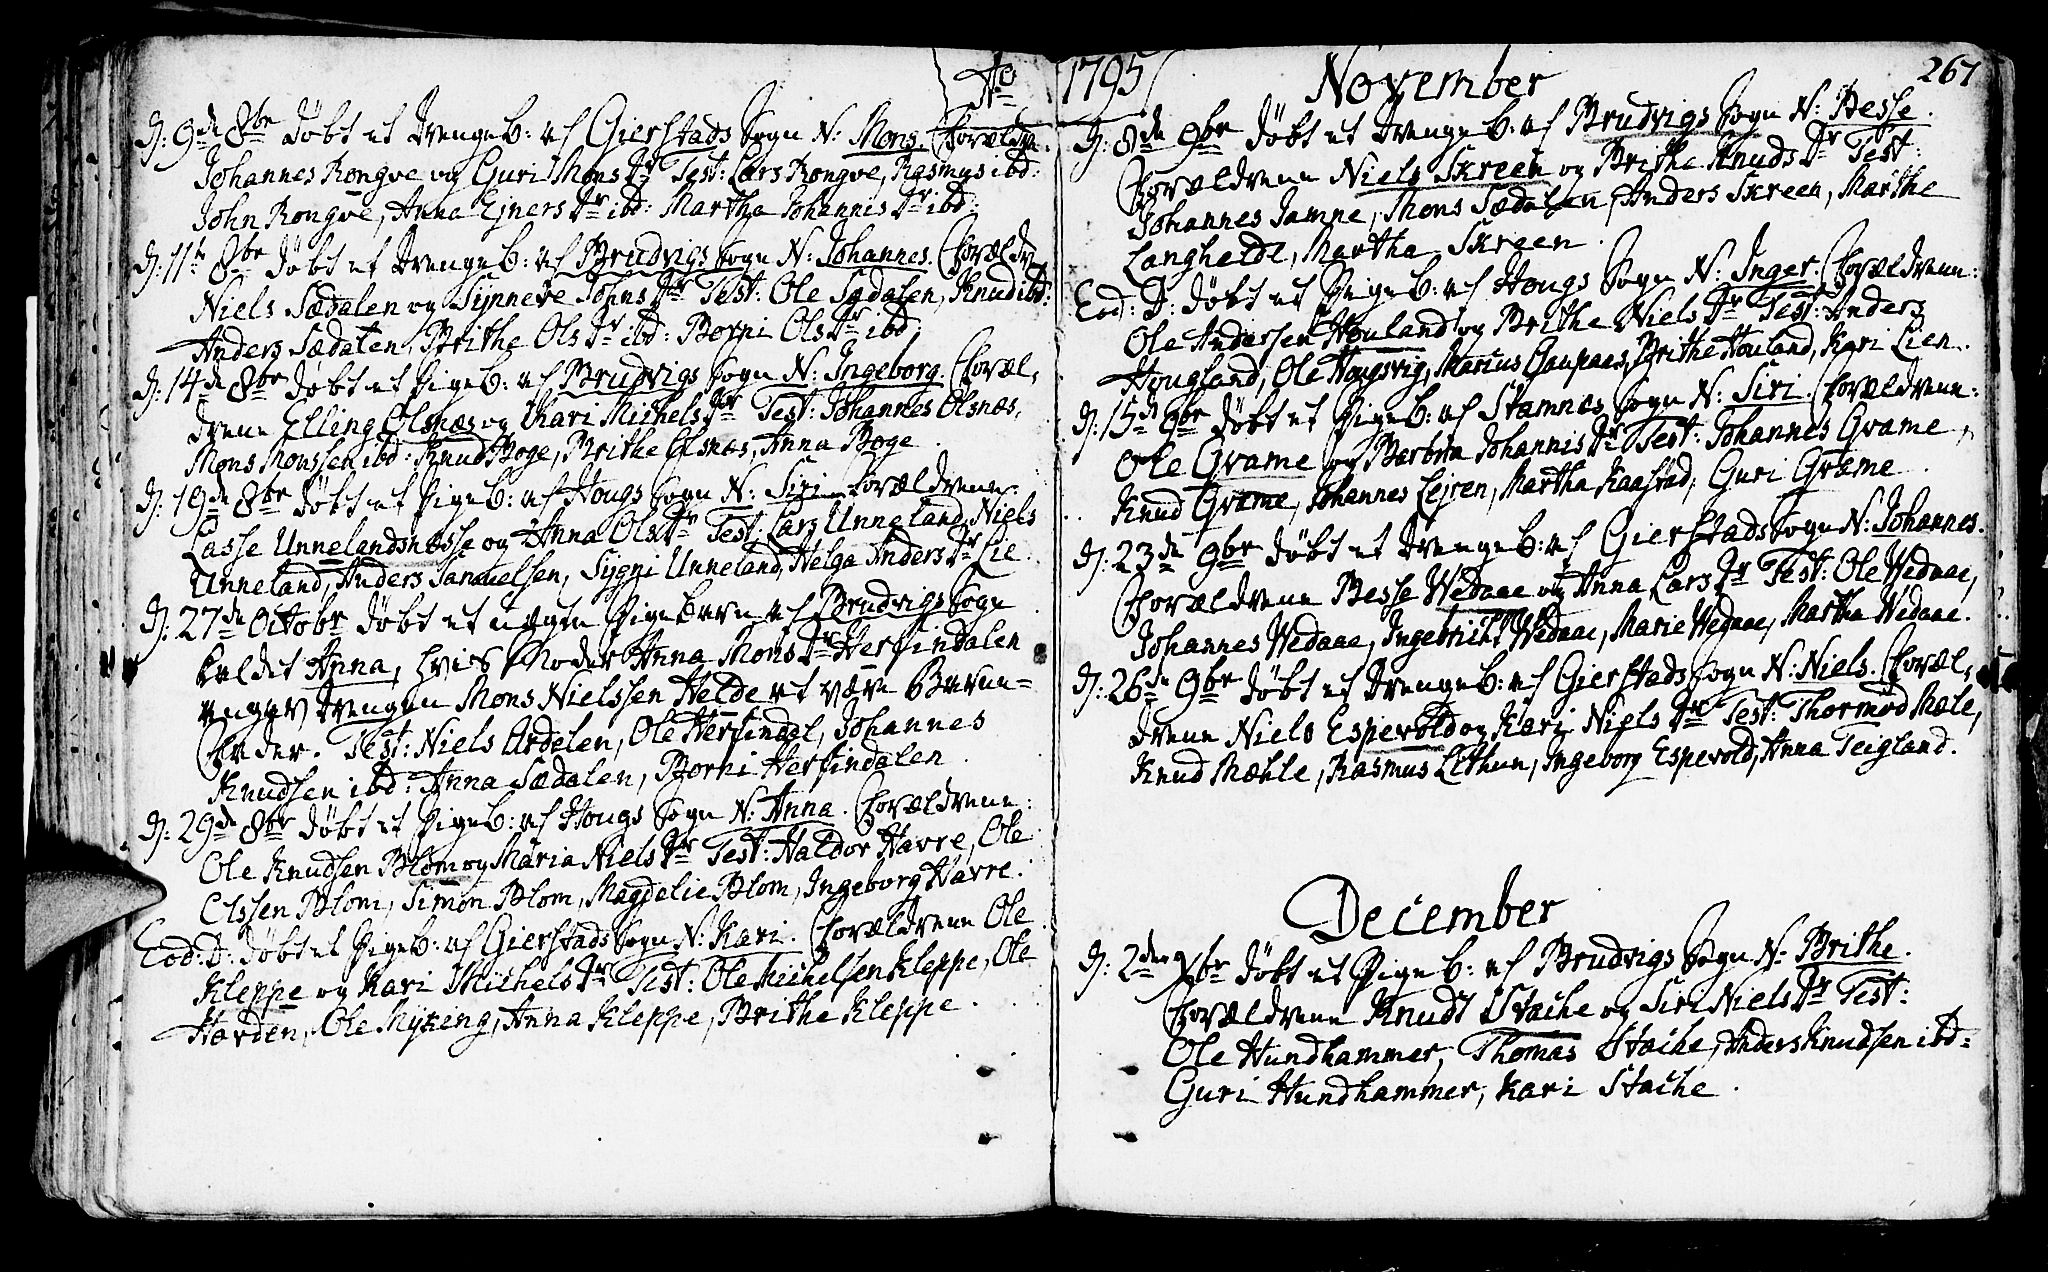 Ao
D: 9de 8br döbt et Drengeb: af Gierstads Sogn N: Mons. Forældre:
Johannes Rongve og Guri Mons Dr Test: Lars Rongve, Rasmus ibd:
John Rongve, Anna Ejners Dr ibd: Martha Johannis Dr ibd:
D: 11te 8br döbt et Drengeb: af Brudvigs Sogn N: Johannes. Forældr:
Niels Sædalen og Synneve Johns Dr Test: Ole Sædalen, Knud ibd:
Anders Sædalen, Brithe Ols Dr ibd: Borni Ols Dr ibd:
D: 14de 8br döbt et Pigeb: af Brudvigs Sogn N: Ingeborg. Foræl-
drene Elling Olsnæs og Kari Michels Dr Test: Johannes Olsnæs,
Mons Monssen ibd: Knud Boge, Brithe Olsnæs, Anna Boge.
D: 19de 8br döbt et Pigeb: af Hougs Sogn N: Siri Forældrene:
Lasse Unnelandsnæsse og Anna Ols Dr Test: Lars Unneland, Niels
Unneland, Anders Samuelsen, Sygni Unneland, Helga Anders Dr Lie.
D: 27de Octobr döbt et uægte Pigebarn af Brudvigs Sogn
kaldet Anna, hvis Moder Anna Mons Dr Herfindalen
angav Drengen Mons Nielssen Helde at være Barne-
Fader. Test: Niels Ardalen, Ole Herfindal, Johannes
Knudsen ibd: Anna Sædalen, Borni Herfindalen.
D: 29de 8br döbt et Pigeb: af Hougs Sogn N: Anna. Forældrene:
Ole Knudsen Blom og Maria Niels Dr Test: Haldor Havre, Ole
Olssen Blom, Simon Blom, Magdelie Blom, Ingeborg Havre.
Eod: D: döbt et Pigeb: af Gierstads Sogn N: Kari. Forældrene Ole
Kleppe og Kari Michels Dr Test: Ole Michelsen Kleppe, Ole
Harden, Ole Myking, Anna Kleppe, Brithe Kleppe.
1795 November 267
D: 8de 9br döbt et Drengeb: af Brudvigs Sogn N: Besse.
Forældrene Niels Skreen og Brithe Knuds Dr Test:
Johannes Jamne, Mons Sædalen, Anders Skreen, Marthe
Langhelde, Martha Skreen.
Eod: D: döbt et Pigeb: af Hougs Sogn N: Inger. Forældrene:
Ole Anderssen Houland og Brithe Niels Dr Test: Anders
Hougland, Ole Hougsvig, Marcus Gaupaas, Brithe Houland, Kari Lien.
D: 15de 9br döbt et Pigeb: af Stamnæs Sogn N: Siri. Forældrene:
Ole Qvame og Barbra Johannis Dr Test: Johannes Qvame,
Knud Qvame, Johannes Lejren, Martha Kaastad, Guri Qvame.
D: 23de 9br döbt et Drengeb: af Gierstads Sogn N: Johannes.
Forældrene Besse Wedaae og Anna Lars Dr Test: Ole Wedaae,
Johannes Wedaae, Ingebricht Wedaae, Marie Wedaae, Martha Wedaae.
D: 26de 9br döbt et Drengeb: af Gierstads Sogn N: Niels. Foræl-
drene Niels Espevold og Kari Niels Dr Test: Thormod Mæle,
Knud Mæhle, Rasmus Lethun, Ingeborg Espevold, Anna Teigland.
December
D: 2den Xbr döbt et Pigeb: af Brudvigs Sogn N: Brithe.
Forældrene Knudt Stache og Siri Niels Dr Test:
Ole Hundhammer, Thomas Stache, Anders Knudsen ibd:
Guri Hundhammer, Kari Stache.